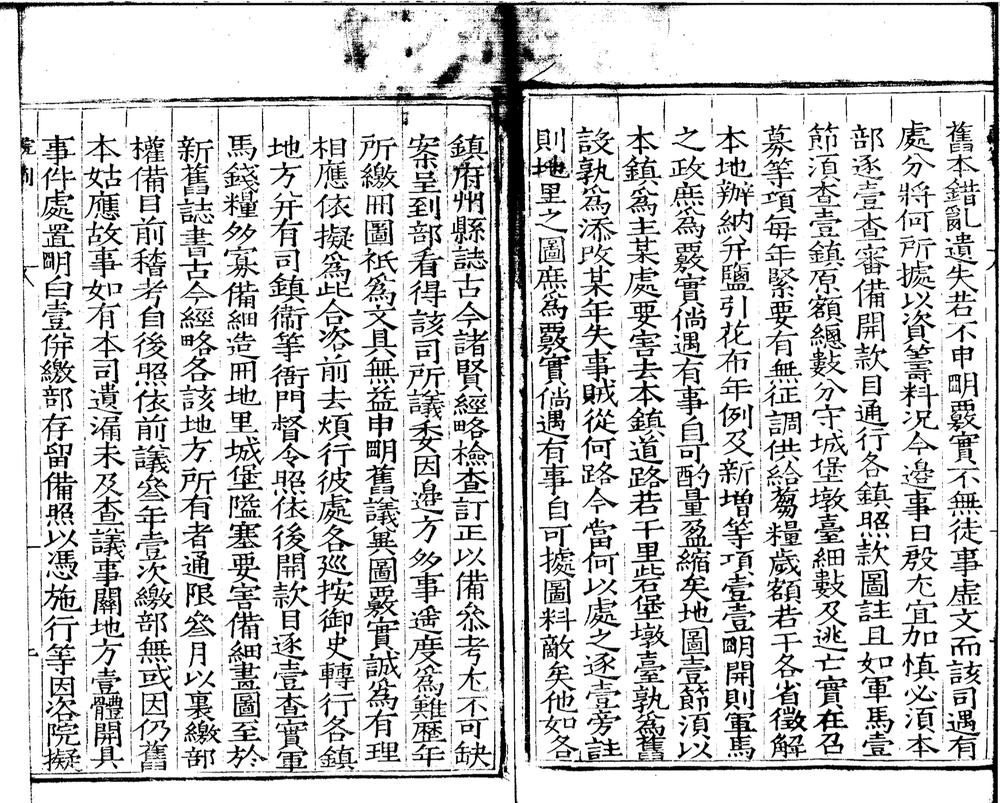 舊本錯亂遺失若不申明覈實不無徒事虛文而該司遇有
處分將何所據以資籌料况今邉事日殷尤宜加慎必須本
部逐壹查審備開款目通行各鎮照款圖註且如軍馬壹
節須查壹鎮原額緫數分守城堡墩臺細數及逃亡實在召
募等項每年緊要有無征調供給芻糧歲額若干各省徵解
本地辦納幷鹽引花布年例及新增等項壹壹明開則軍馬
之政庶爲覈實倘遇有事自可酌量盈縮矣地圖壹節須以
本鎮爲主某處要害去本鎮道路若干里砦堡墩臺孰爲舊
設孰爲添改某年失事賊從何路今當何以處之逐壹旁註
則地里之圖庶爲覈實倘遇有事自可據圖料敵矣他如各
鎮府州縣誌古今諸賢經略檢查訂正以備叅考尤不可缺
案呈到部看得該司所議委因邉方多事遥度爲難歷年
所繳冊圖祇爲文具無益申明舊議異圖覈實誠爲有理
相應依擬爲此合咨前去煩行彼處各廵按御史轉行各鎮
地方幷有司鎮衞等衙門督令照依後開款目逐壹查實軍
馬錢糧多寡備細造冊地里城堡隘塞要害備細畫圖至於
新舊誌書古今經略各該地方所有者通限叄月以裏繳部
權備目前稽考自後照依前議叄年壹次繳部無或因仍舊
本姑應故事如有本司遺漏未及查議事關地方壹體開具
事件處置明白壹併繳部存留備照以憑施行等因咨院擬